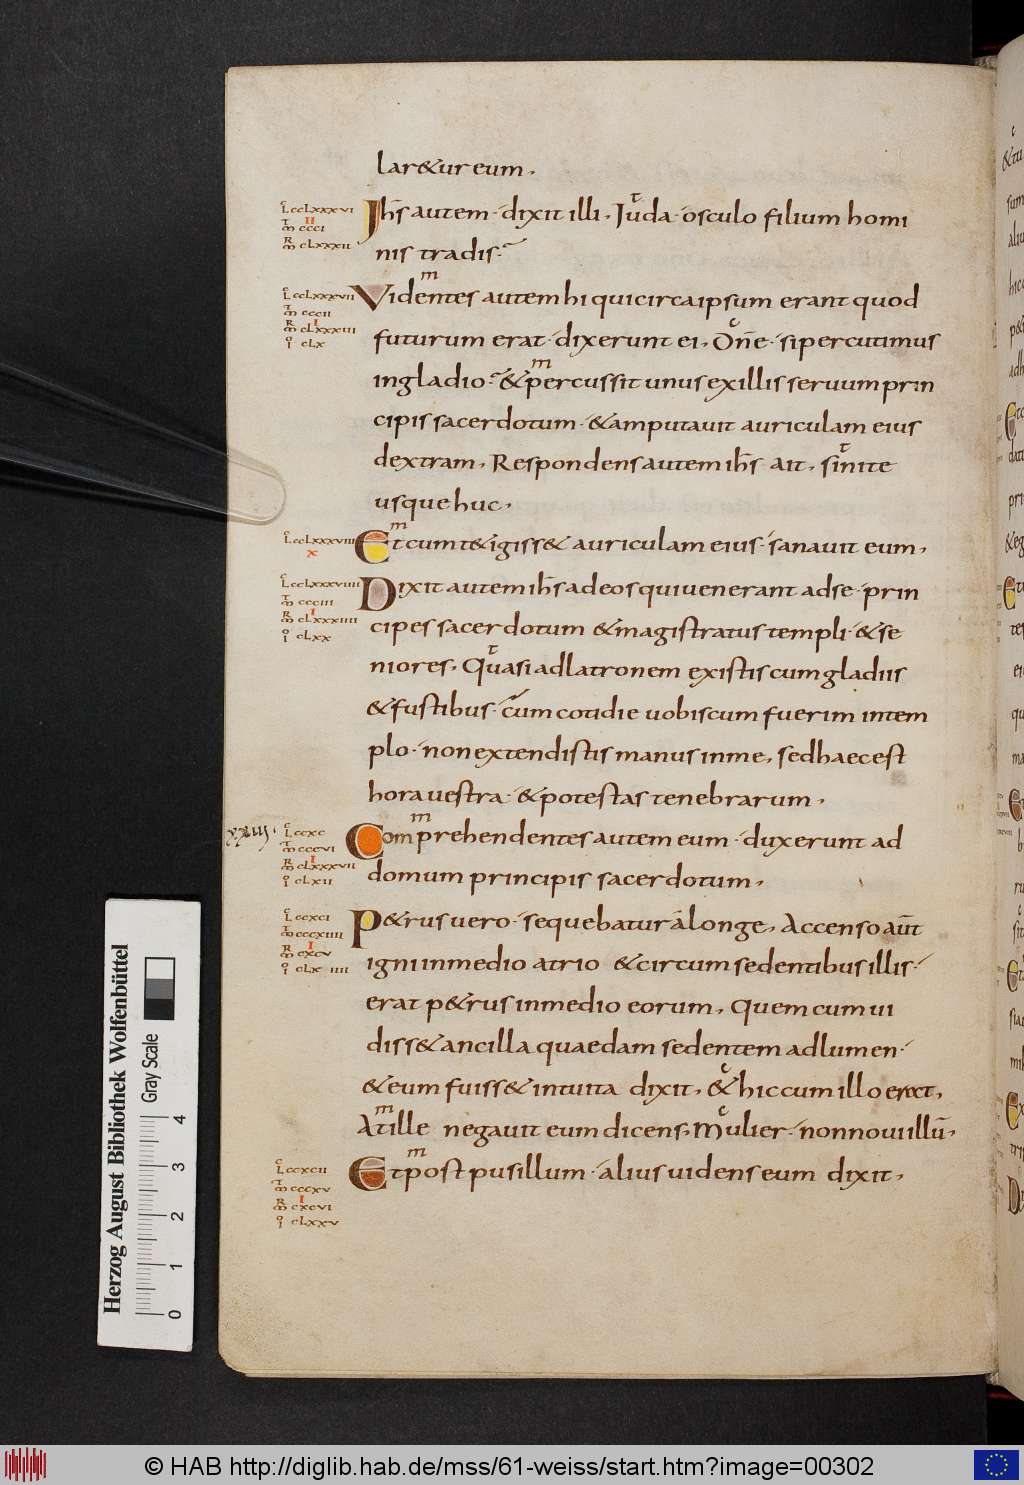 lar&ur eum.
L ccLxxxvi
II
m ccci
m cLxxxii
Ihs autem· dixit illi. Iuda· osculo filium homi
nis tradis·
L ccLxxxvii
m cccii
I
m cLxxxiii
i cLx
Videntes autem hi qui circa ipsum erant quod
futurum erat· dixerunt ei. Dne· si percutimus
in gladio· & percussit unus ex illis seruum prin
cipis sacerdotum· & amputauit auriculam eius
dextram. Respondens autem ihs· ait. sinite
usque huc.
L ccLxxxviii
x
Et cum t&igiss& auriculam eius· sanauit eum.
L ccLxxxviiii
m ccciii
I
m cLxxxiiii
i cLxx
Dixit autem ihs ad eos qui uenerant ad se· prin
cipes sacerdotum & magistratus templi· & se
niores. Quasi ad latronem existis cum gladiis
& fustibus· cum cotidie uobiscum fuerim in tem
plo· non extendistis manus in me. sed haec est
hora uestra· & potestas tenebrarum.
xxiiii.
L ccxc
m cccvi
I
m cLxxxvii
i cLxii
Comprehendentes autem eum· duxerunt ad
domum principis sacerdotum.
L ccxci
m cccxiiii
I
m cxcv
i cLx iiii
P&rus uero· sequebatur a longe. Accenso aut
igni in medio atrio & circum sedentibus illis·
erat p&rus in medio eorum. Quem cum ui
diss& ancilla quaedam sedentem ad lumen·
& eum fuiss& intuita dixit. & hic cum illo erat.
At ille negauit eum dicens. Mulier· non noui illu.
L ccxcii
m cccxv
I
m cxcvi
i cLxxv
Et post pusillum· alius uidens eum dixit.
Herzog August Bibliothek Wolfenbüttel
Gray Scale
0 1 2 3 4
© HAB http://diglib.hab.de/mss/61-weiss/start.htm?image=00302